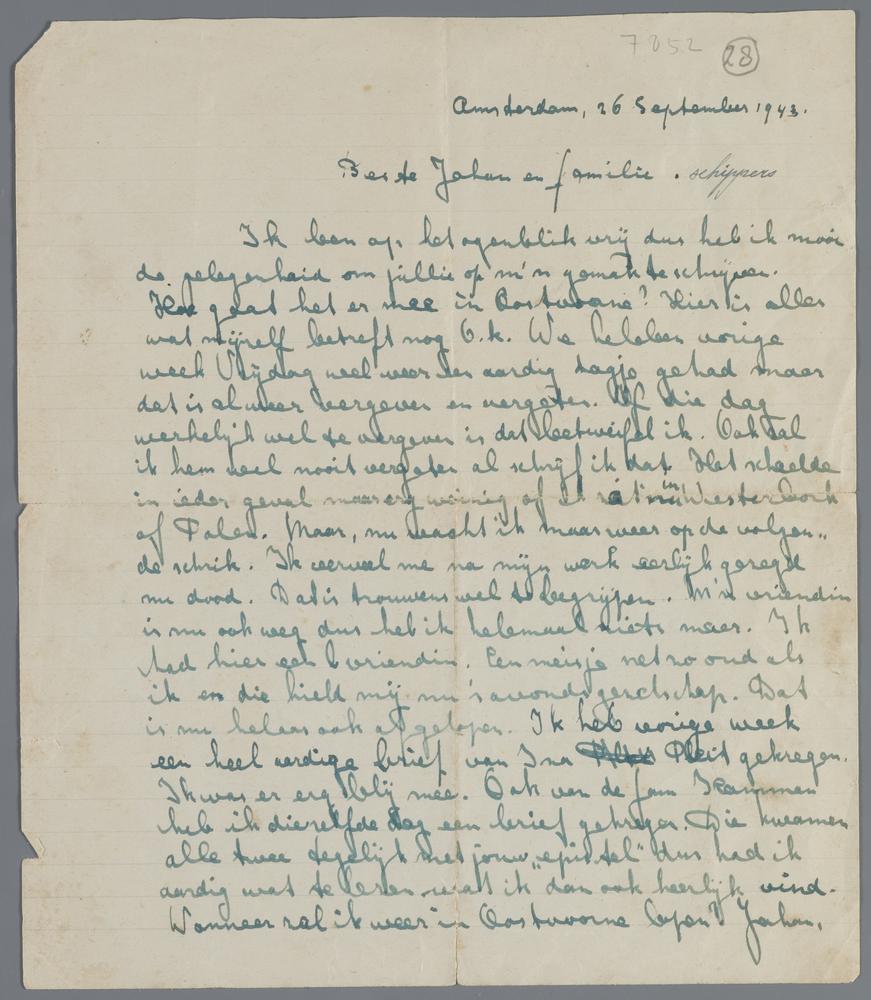 7852 28
Amsterdam, 26 September 1943.
Beste Johan en familie. schippers
Ik ben op het ogenblik vrij dus heb ik mooi
de gelegenheid om jullie op m'n gemak te schrijven.
Hoe gaat het er mee in Oostvoorne? Hier is alles
wat mijzelf betreft nog O.k. We hebben vorige
week Vrijdag wel weer een aardig dagje gehad maar
dat is al weer vergeven en vergeten. Of die dag
werkelijk wel te vergeven is dat betwijfel ik. Ook zal
ik hem wel nooit vergeten al schrijf ik dat. Het scheelde
in ieder geval maar erg weinig of ik zat nu in Westerbork
of Polen. Maar, nu wacht ik maar weer op de volgen„
de schrik. Ik verveel me na mijn werk eerlijk gezegd
nu dood. Dat is trouwens wel te begrijpen. M'n vriendin
is nu ook weg dus heb ik helemaal niets meer. Ik
had hier een vriendin. Een meisje net zo oud als
ik en die hield mij nu 's avonds gezelschap. Dat
is nu helaas ook afgelopen. Ik heb vorige week
een heel aardige brief van Ina Pleit gekregen.
Ik was er erg blij mee. Ook van de fam Kamman
heb ik diezelfde dag een brief gekregen. Die kwamen
alle twee tegelijk met jouw „epistel" dus had ik
aardig wat te lezen wat ik dan ook heerlijk vind.
Wanneer zal ik weer in Oostvoorne lopen? Johan,